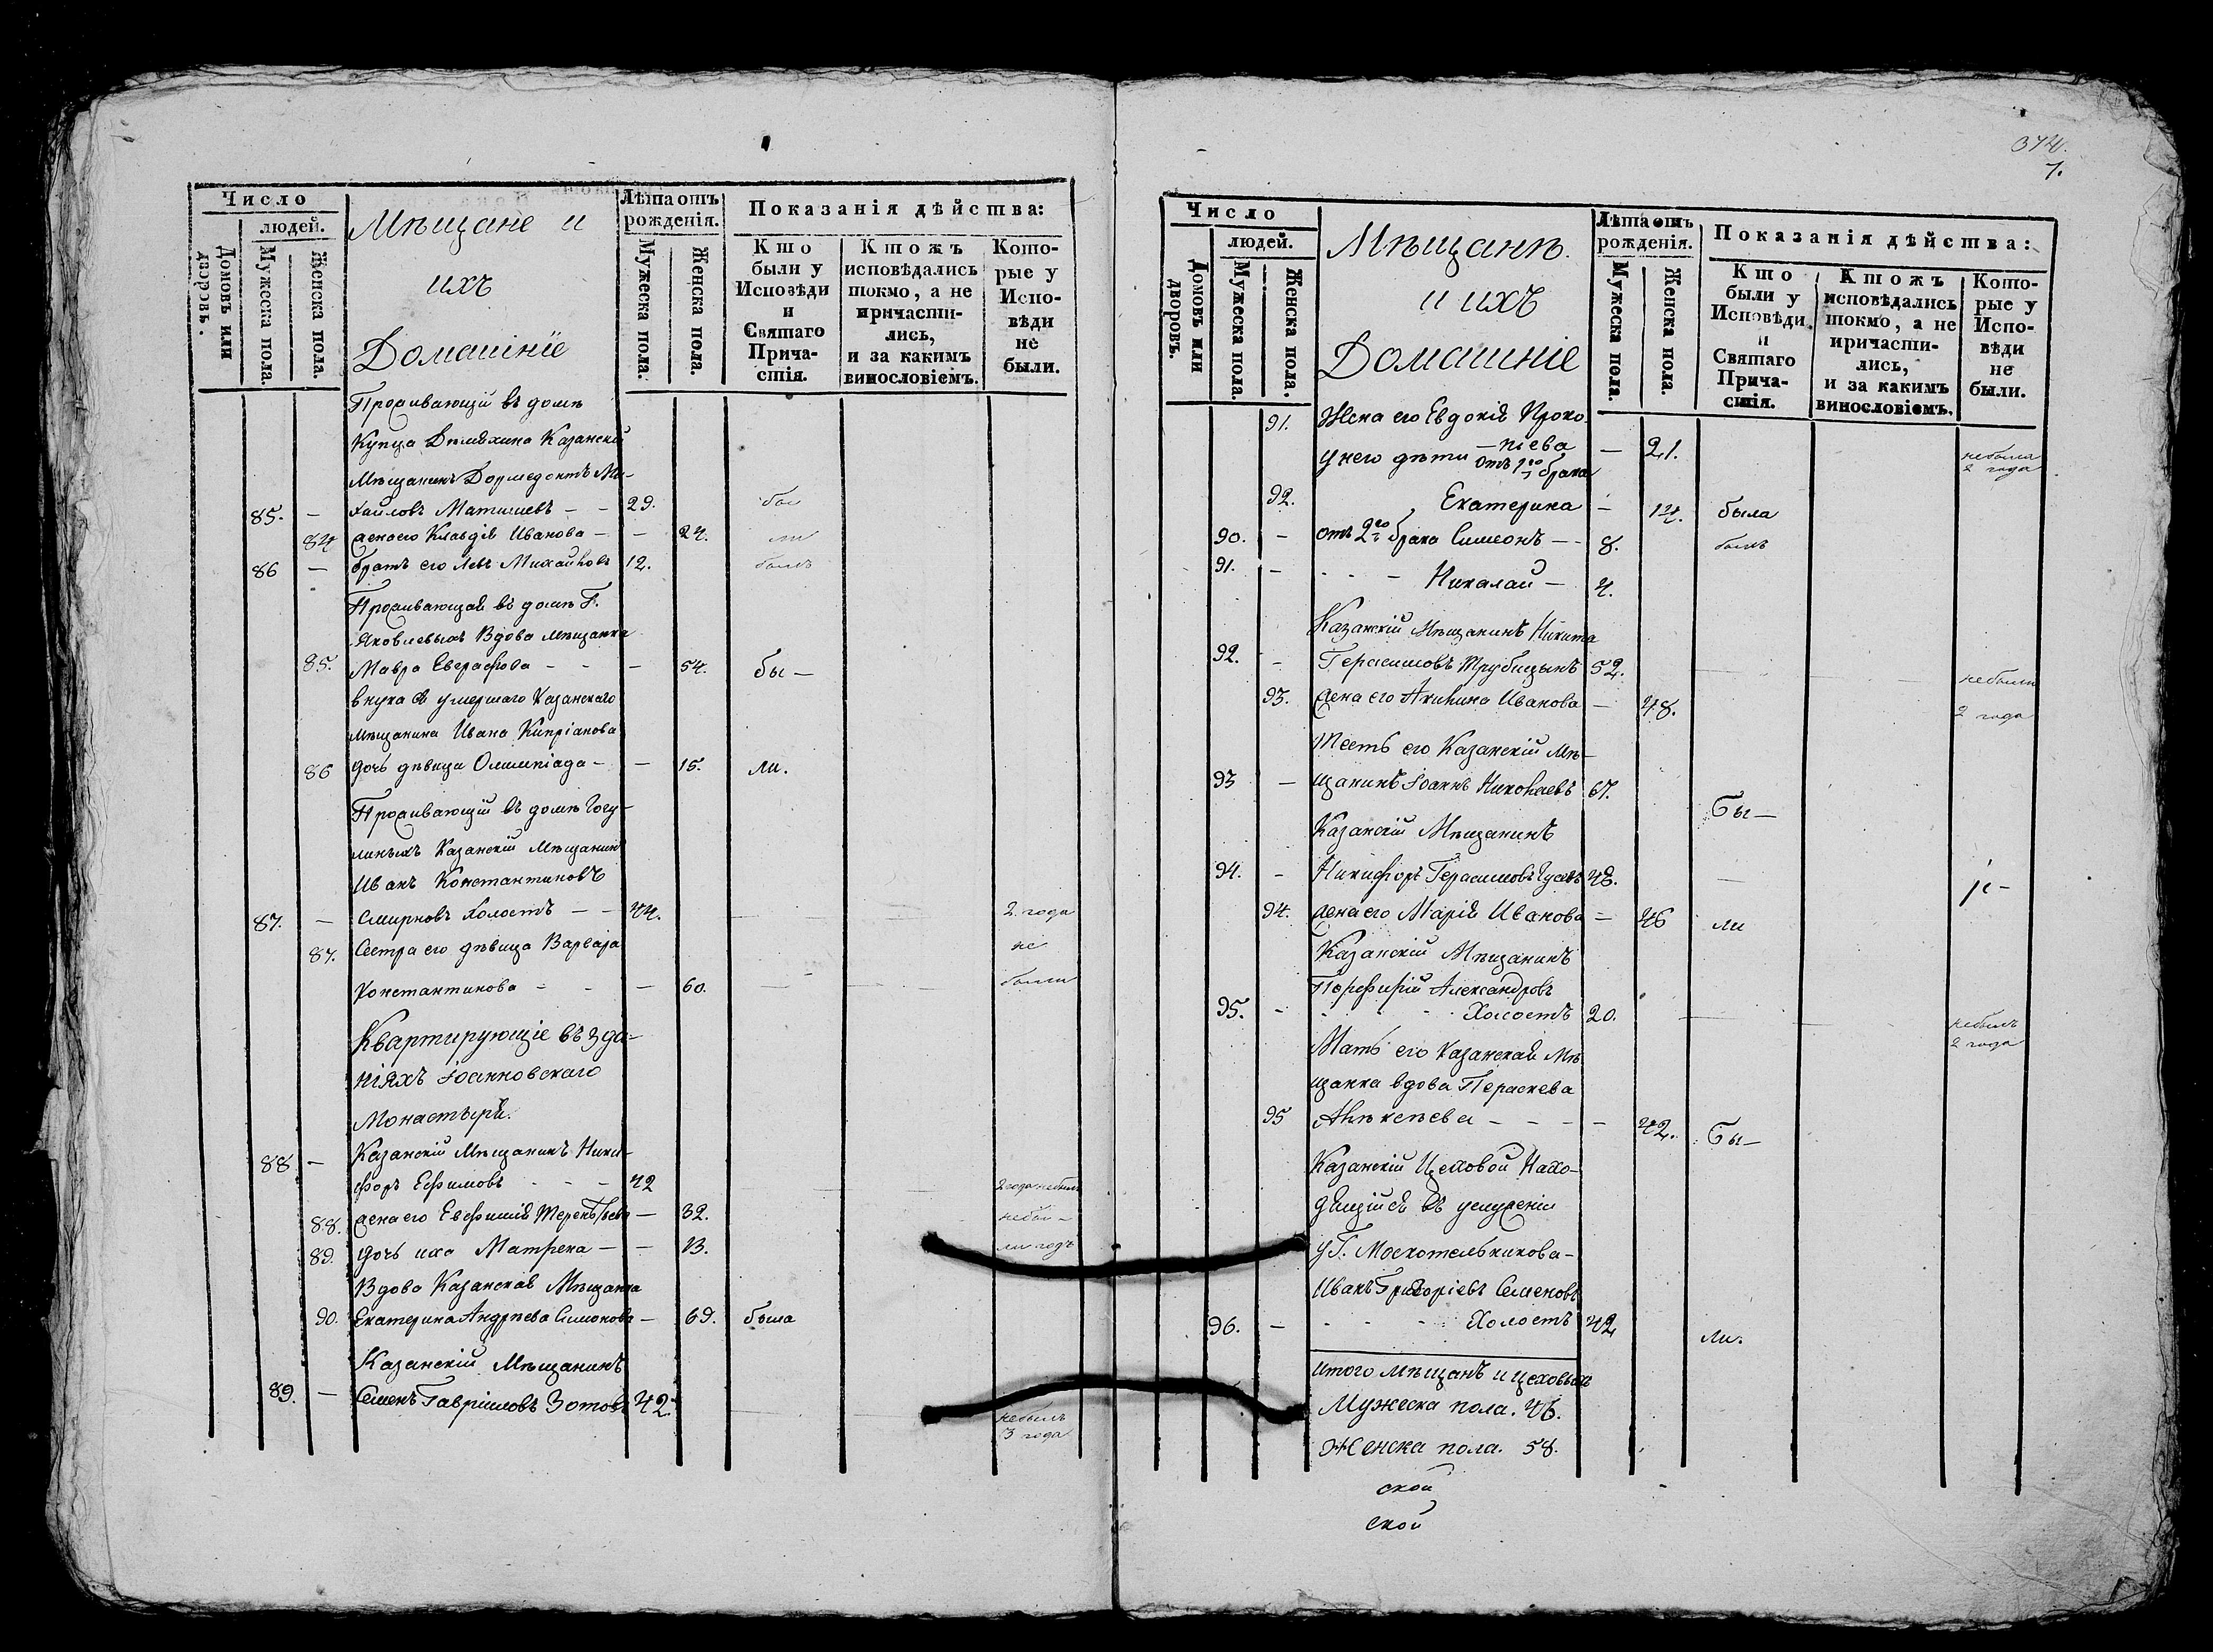 Число
людей.
Домовъ или дворовъ.
Мужеска пола.
Женска пола.
Мѣщане и
ихъ
Домашніе
Лѣта отъ рожденія.
Мужеска пола.
Женска пола.
Показанія дѣйства:
Кто были у Исповѣди и Святаго Прича-стія.
Ктожъ исповѣдались токмо, а не причасти-лись, и за какимъ винословіемъ.
Кото-рые у Испо-вѣди не были.
Проживающій въ домѣ
Купца Казанскій
Мѣщанинъ Дормедонтъ Ми-
85. – хайловъ Матвѣевъ – – 29. был
84 жена его Клавдія Иванова – – 24. ли
86 – братъ его Левъ Михайловъ 12. былъ
Проживающая въ домѣ Г.
Яковлевыхъ Вдова мѣщанка
85. Мавра Евграфова – – – 54. бы –
внука ея умершаго Казанскаго
мѣщанина Ивана Кипріанова
86 дочь дѣвица Олимпіада – – 15. ли.
Проживающій въ домѣ Чогу-
линыхъ Казанскій Мѣщанинъ
Иванъ Константиновъ
87. – Смирновъ холостъ – – 44. 2 года
87. Сестра его дѣвица Варвара не
Константинова – – – 60. были
Квартирующіе въ зда-
ніяхъ Іоанновскаго
Монастыря.
88 – Казанскій Мѣщанинъ Ники-
форъ Ефимовъ – – – 42 2 года небылъ
88. жена его Евфимія Терентьева – 32. небы –
89. дочь ихъ Матрена – – 13. ли годъ
Вдова Казанская Мѣщанка
90. Екатерина Андреева Симонова – 69. была
Казанскій Мѣщанинъ
89. – Семенъ Гавриловъ Зотовъ 42. небылъ
3 года
374.
7.
Число
людей.
Домовъ или дворовъ.
Мужеска пола.
Женска пола.
Мѣщанѣ.
и ихъ
Домашніе
Лѣта отъ рожденія.
Мужеска пола.
Женска пола.
Показанія дѣйства:
Кто были у Исповѣди и Святаго Прича-стія.
Ктожъ исповѣдались токмо, а не причасти-лись, и за какимъ винословіемъ.
Кото-рые у Испо-вѣди не были.
91. Жена его Евдокія Проко-
–піева – 21. небыла
у него дѣти отъ 1го брака 2 года
92. Екатерина – 14. была
90. – отъ 2го брака Симеонъ – – 8. былъ
91. – – Николай – 4.
Казанскій Мѣщанинъ Никита
92. – Герасимовъ Трубицынъ 52. небыли
93. жена его Акилина Иванова – 48. 2 года
Тесть его Казанскій Мѣ-
93 – щанинъ Іоаннъ Николаевъ 67. Бы –
Казанскій Мѣщанинъ
94. – Никифоръ Герасимовъ Гусевъ 48.
94. жена его Марія Иванова – 46 ли
Казанскій Мѣщанинъ
Порфирій Александровъ
95. – Холостъ 20. небылъ
Мать его Казанская Мѣ- 2 года
щанка вдова Параскева
95 Алексѣева – – – – 42. Бы –
Казанскій Цеховой Нахо-
дящійся въ услуженіи
у Г. Москотельникова –
Иванъ Григоріевъ Семеновъ
96. – Холостъ 42 ли.
Итого Мѣщанъ и цеховыхъ
Мужеска пола. 46.
Женска пола. 58.
ской
ской